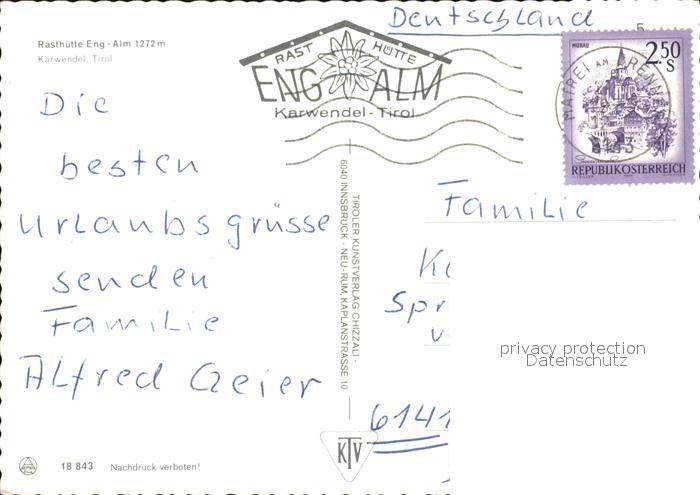 Rasthütte Eng - Alm 1272 m
Karwendel, Tirol
Die
besten
Urlaubsgrüsse
senden
Familie
Alfred Geier
18 843 Nachdruck verboten!
RAST HÜTTE
ENG ALM
Karwendel - Tirol
TIROLER KUNSTVERLAG CHIZZALI ·
6040 INNSBRUCK - NEU-RUM, KAPLANSTRASSE 10
KTV
Deutschland
5
MURAU
2.50
S
REPUBLIK ÖSTERREICH
MATREI AM BRENNER
6143
Familie
Spr
6141
privacy protection
Datenschutz